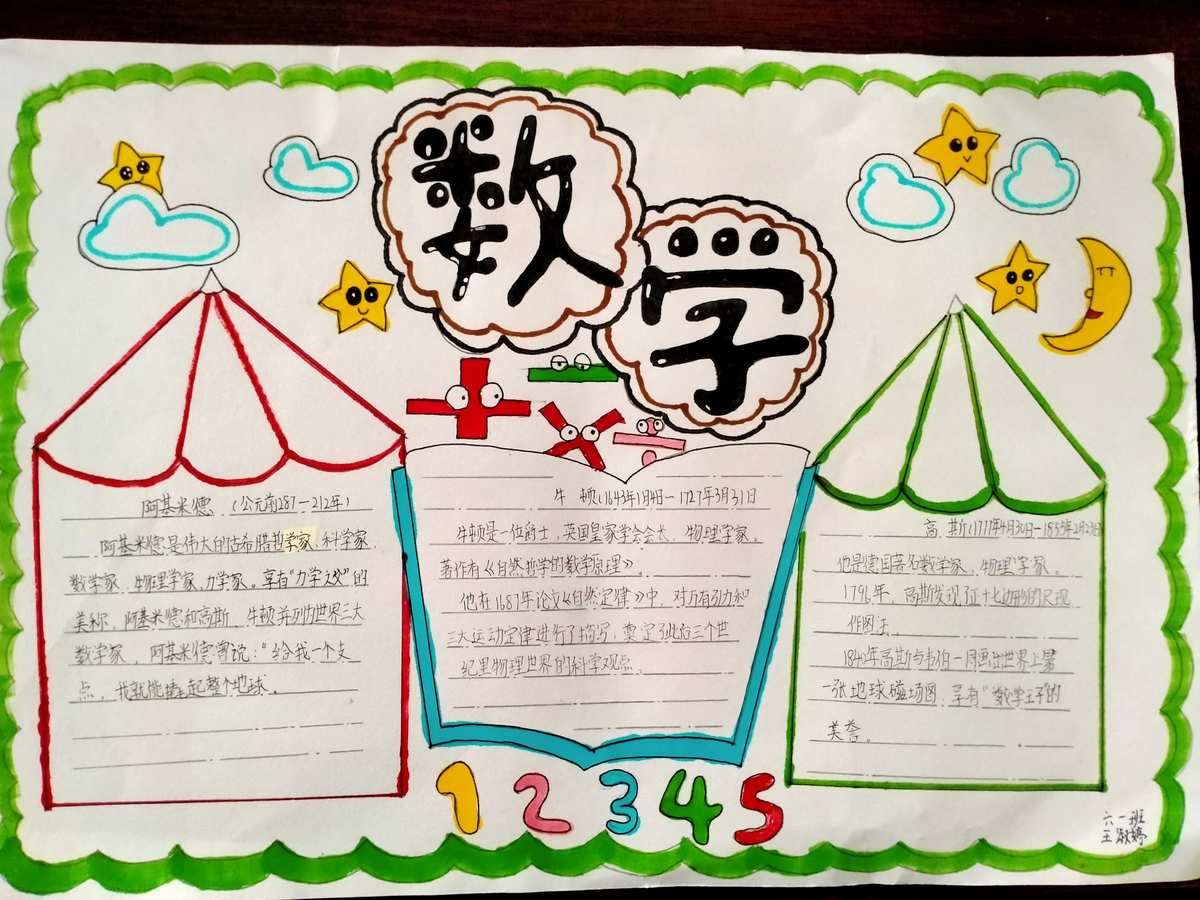 数学
阿基米德 (公元前287—212年)
阿基米德是伟大的古希腊哲学家、科学家、
数学家、物理学家、力学家。享有“力学之父”的
美称，阿基米德和高斯、牛顿并列为世界三大
数学家，阿基米德曾说：“给我一个支
点，我就能撬起整个地球。
牛 顿(1643年1月4日—1727年3月31日
牛顿是一位爵士，英国皇家学会会长，物理学家，
著作有《自然哲学的数学原理》。
他在1687年论文《自然定律》中，对万有引力和
三大运动定律进行了描写，奠定了此后三个世
纪里物理世界的科学观点、
高 斯(1777年4月30日—1855年2月23日)
他是德国著名数学家、物理学家。
1796年，高斯发现了正十七边形的尺规
作图法，
1840年高斯与韦伯一同画出世界上第
一张地球磁场图，享有“数学王子”的
美誉。
1 2 3 4 5
六一班
王淑婷